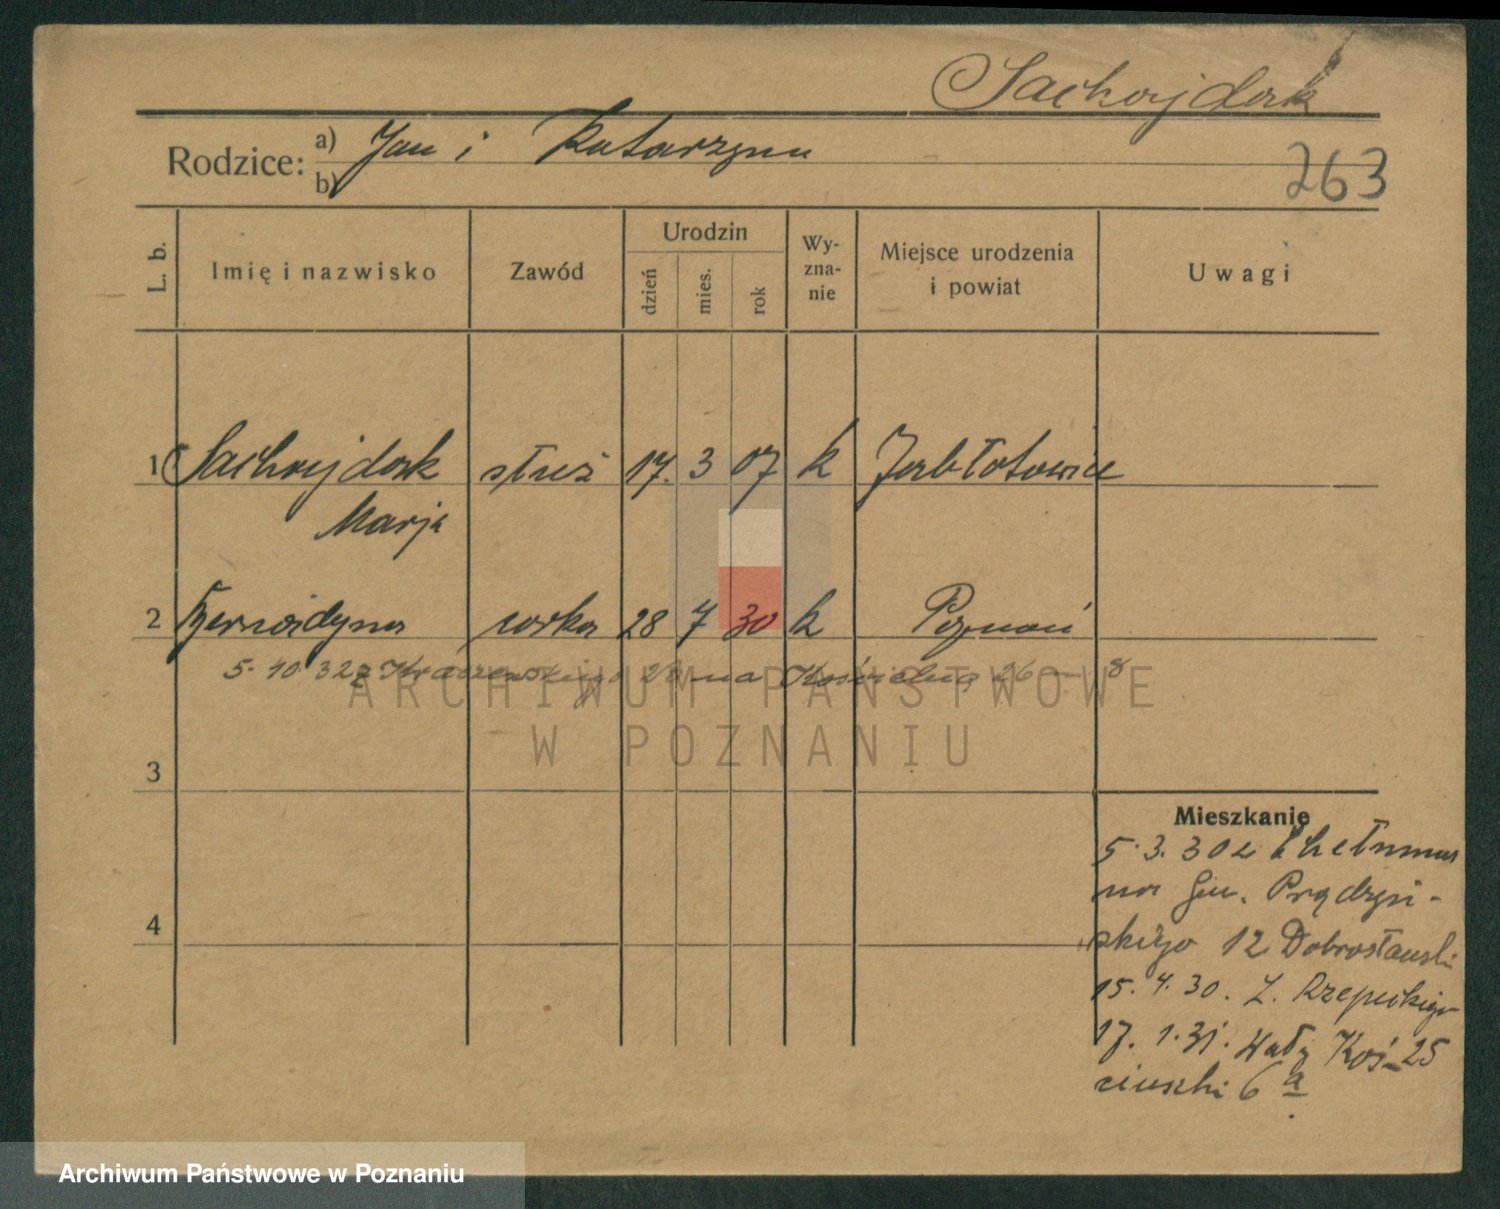 Sachajdak
Rodzice: a) Jan i Katarzyna
b)
263
L. b. Imię i nazwisko Zawód Urodzin dzień mies. rok Wy-zna-nie Miejsce urodzenia i powiat Uwagi
1 Sachajdak służ 17. 3 07 k Jabłotowice
Marja
2 córka 28 7 30 k Poznań
5. 10 32 z Kraszewskiego 28 na Kościelną 26 — 8
ARCHIWUM PAŃSTWOWE
W POZNANIU
3
Mieszkanie
5.3.30 z Chełmna
na Gen. Prądzyń-
4
skiego 12 Dobrosławski
15. 4. 30. Z. Rzepeckiego
17. 1. 31. Wały Koś- 25
ciuszki 6 a
Archiwum Państwowe w Poznaniu